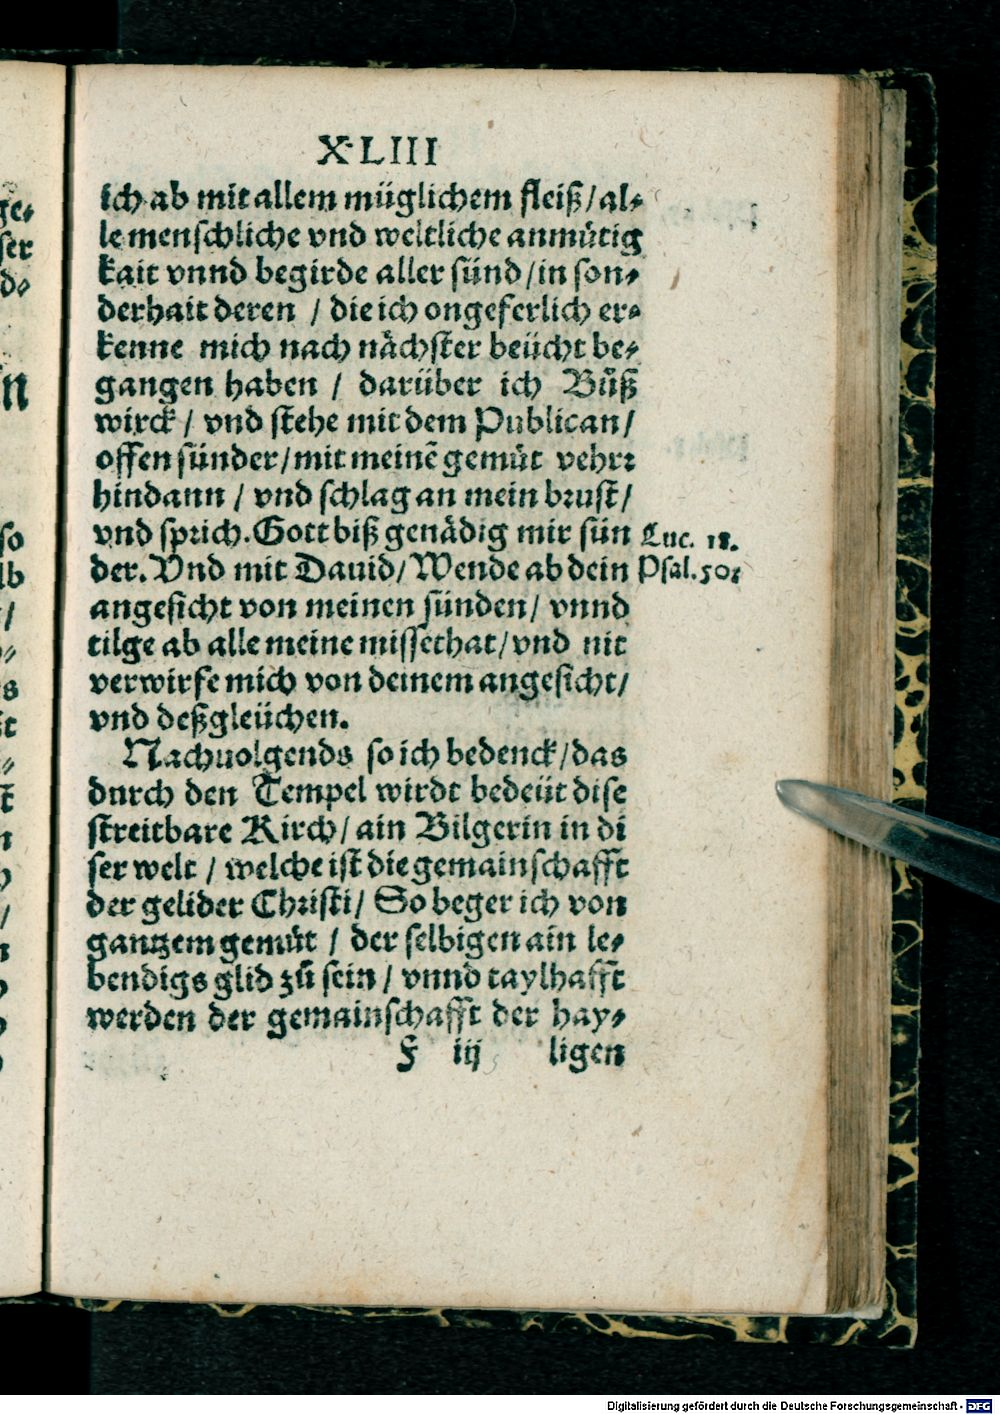 X·LIII
ich ab mit allem müglichem fleiß/al⸗
le menschliche vnd weltliche anmütig
kait vnnd begirde aller sünd/in son⸗
derhait deren / die ich ongeferlich er⸗
kenne mich nach nächster beücht be⸗
gangen haben / darüber ich Bůß
wirck / vnd stehe mit dem Publican/
offen sünder/mit meinē gemüt vehr:
hindann / vnd schlag an mein brust/
vnd sprich. Gott biß genädig mir sün
Luc. 18.
der. Vnd mit Dauid/Wende ab dein
Psal.50:
angesicht von meinen sünden/ vnnd
tilge ab alle meine missethat/vnd nit
verwirfe mich von deinem angesicht/
vnd deßgleüchen.
Nachuolgends so ich bedenck/das
durch den Tempel wirdt bedeüt dise
streitbare Kirch/ ain Bilgerin in di
ser welt / welche ist die gemainschafft
der gelider Christi/ So beger ich von
gantzem gemüt / der selbigen ain le⸗
bendigs glid zů sein / vnnd taylhafft
werden der gemainschafft der hay⸗
F iij ligen
ge⸗
ser
d⸗
so
lb
Digitalisierung gefördert durch die Deutsche Forschungsgemeinschaft - DFG